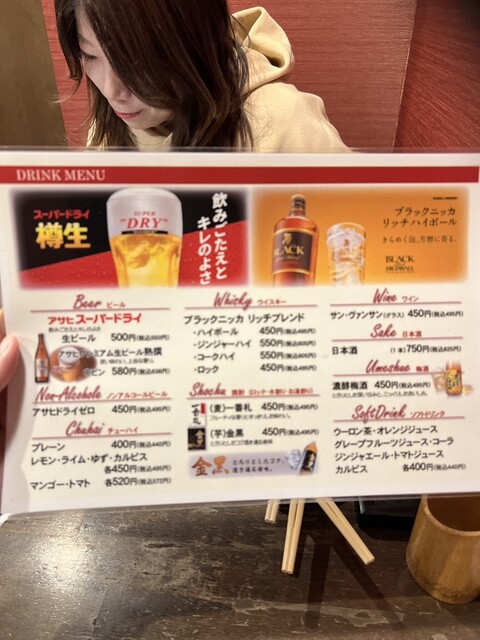 DRINK MENU
スーパードライ
樽生
SUPER
"DRY"
飲みごたえと
キレのよさ
ブラックニッカ
リッチハイボール
きらめく泡、芳醇に香る。
BLACK
HIGHBALL
BLACK
Beer ビール
アサヒ スーパードライ
生ビール 500円(税込550円)
ビン 580円(税込638円)
Non-Alcohole ノンアルコールビール
アサヒドライゼロ 450円(税込495円)
Chuhai チューハイ
プレーン 400円(税込440円)
レモン・ライム・ゆず・カルピス
各450円(税込495円)
マンゴー・トマト 各520円(税込572円)
Whisky ウイスキー
ブラックニッカ リッチブレンド
・ハイボール 450円(税込495円)
・ジンジャーハイ 550円(税込605円)
・コークハイ 550円(税込605円)
・ロック 450円(税込495円)
Shochu 焼酎 (ロック・水割り・お湯割り)
(麦)一番札 450円(税込495円)
(芋)金黒 450円(税込495円)
金黒
とろりとしたコク、
透き通る美味。
Wine ワイン
サン・ヴァンサン(グラス) 450円(税込495円)
Sake 日本酒
日本酒 (1本)750円(税込825円)
Umeshue 梅酒
濃醇梅酒 450円(税込495円)
SoftDrink ソフトドリンク
ウーロン茶・オレンジジュース
グレープフルーツジュース・コーラ
ジンジャエール・トマトジュース
カルピス 各400円(税込440円)